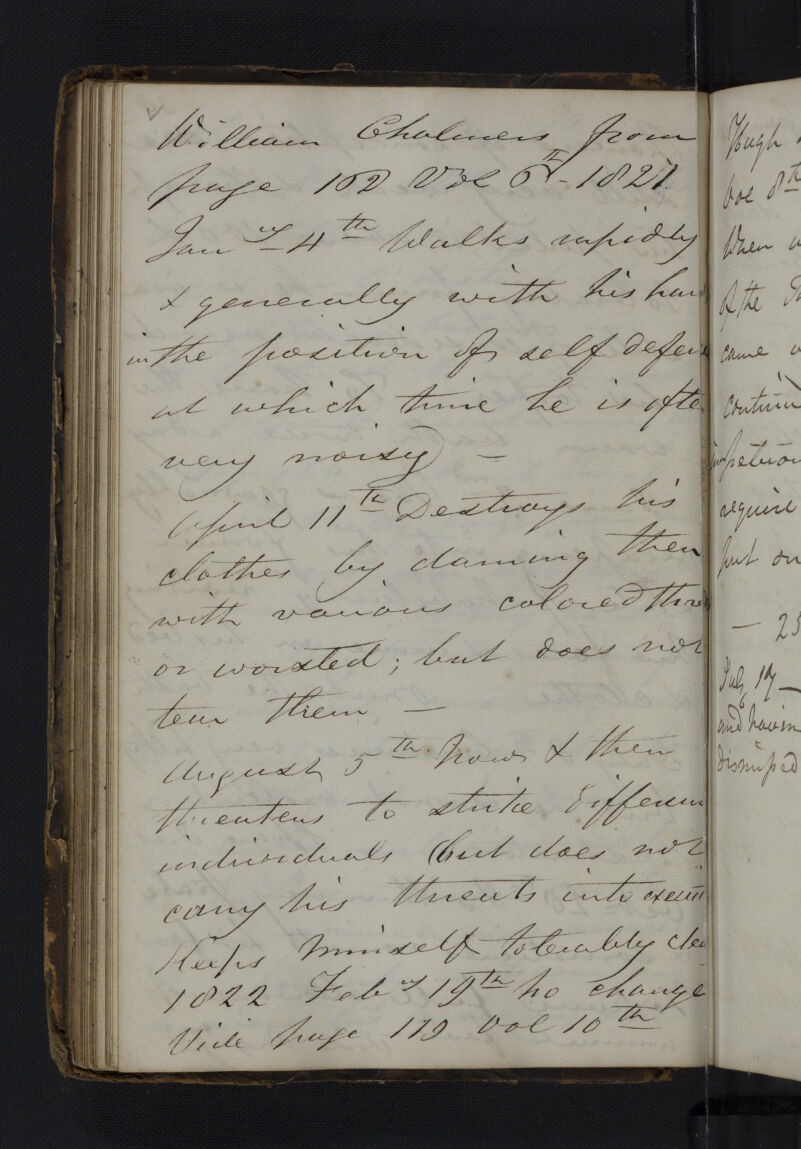 William Chalmers from
page 162 Vol 6th - 1821.
Jany 4th Walks rapidly
& generally with his han
in the position of self defen
at which time he is ofte
very noisy —
April 11th Destroys his
clothes by darning them
with various colored thre
or worsted; but does not
tear them —
August 5th Now & then
threatens to strike differen
individuals (but does not
carry his threats into execut
Keeps himself tolerably clea
1822 Feby 19th no change
Vide page 119 Vol 10th
Hugh
Vol 8th
When
of the
came
continu
require
put on
— 25
July 17 —
and havin
dismissed